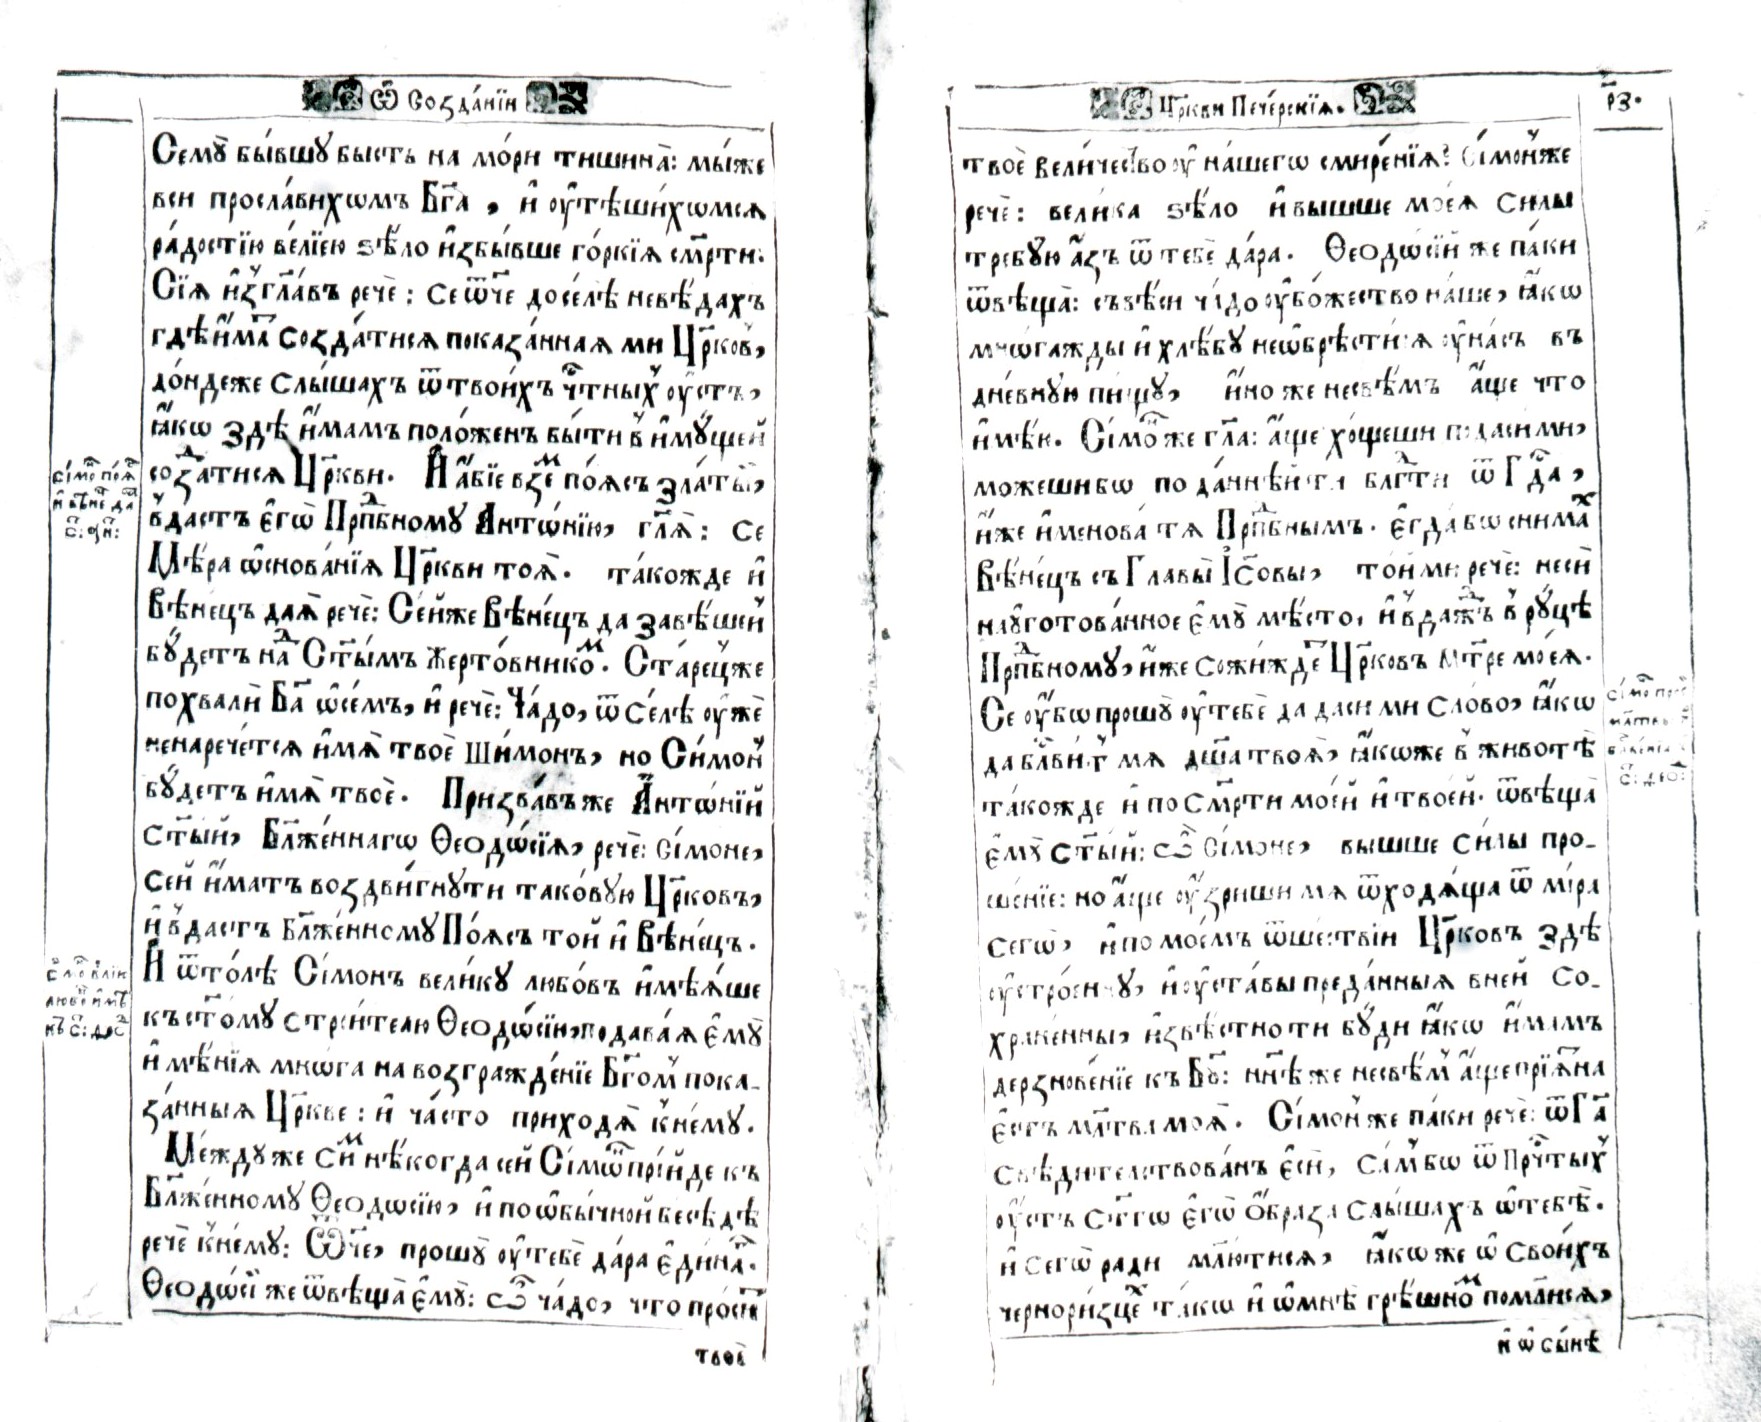 Ѡ҃ Созда́нїи
Семꙋ̀ бы́вшꙋ бысть на мо́ри тишина̀: мы́же
вси просла́вихѡмъ Бг҃а , и҆ ᲂу҆тѣши́хѡмсѧ
ра́достїю ве́лїею ѕѣ́ло и҆збы́вше го́ркїѧ см҃рти:
Сїѧ и҆з꙾гл҃а́въ речѐ: се ѿч҃е досе́лѣ невѣ́дахъ
гдѣ и҆́ма́ созда́тисѧ показа́ннаѧ ми Цр҃ковꙿ,
до́ндеже слы́шахъ ѿ твои́хъ чⷭ҇тныхꙿ ᲂу҆́стъ,
ꙗ҆́кѡ здѣ̀ и҆́мамъ поло́женъ бы́ти вꙿ и҆мꙋ́щей
созⷣатисѧ Цр҃кви. И҆ а҆́бїе взеⷨ по́ѧсъ зла́тый,
вꙿдастъ є҆гѡ̀ Прⷣпбному Антѡ́нїю, гл҃ѧ: се
Мѣ́ра ѡ҆снова́нїѧ Цр҃кви тоѧ̀. та́кожде и҆
Вѣне́цъ даѧ̀ речѐ: Се́йже Вѣне́цъ да завѣ́шенꙿ
бꙋ́детъ наⷣ Ст҃ы́мъ Жерто́вникоⷨ. Ста́рецꙿже
похвалѝ Бг҃а ѡ҆се́мъ, и҆ речѐ: Ча́до, ѿ се́лѣ ᲂу҆жѐ
ненарече́тсѧ и҆́мѧ твоѐ Ши́монъ, но Си́монꙿ
бꙋ́детъ и҆́мѧ твоѐ. Призва́въже А҆нтѡ́нїй
ст҃ы́й, Бл҃же́ннагѡ Ѳеодѡ́сїѧ, речѐ: Сі́моне,
сей и҆́матъ воздви́гнꙋти тако́вꙋю Цр҃ковъ,
и҆ вꙿдастъ Бл҃же́нномꙋ По́ѧсъ той и҆ Вѣне́цъ.
И҆ ѿто́лѣ Сі́монъ вели́кꙋ любо́въ и҆мѣ́ѧше
къ ст҃о́мꙋ строи́телю Ѳеодѡ́сїю, подава́ѧ є҆мꙋ̀
и҆мѣ́нїѧ мнѡ́га на возгражде́нїе Бг҃омꙿ пока-
за́нныѧ Цр҃кве: и҆ ча́сто приходѧ̀ кꙿне́мꙋ.
Ме́ждꙋ же сиⷨ нѣ́когда сей Сі́мѡⷩ҇ прі́йде къ
Бл҃же́нномꙋ Ѳеодѡсїю, и҆ по ѡ҆бы́чной бесѣ́дѣ
речѐ кꙿне́мꙋ: Ѿч҃е, прошꙋ̀ ᲂу҆ тебѐ да́ра є҆ди́наⷢ.
Ѳеодѡ́сїй же ѿвѣща̀ є҆мꙋ̀: ѽ ча́до, что про́ситꙿ
твоѐ
Сі́мѡⷩ҇ по́ѧⷭ҇
и҆ вѣнеⷰ҇ даⷭ҇
Сⷮ: ѻ҃и:
Сі́мѡⷩ҇ ве́лїю
любоⷡ҇ и҆мѣ̀
къ Сⷮ: Ѳеоⷣ:
Цр҃кви Пече́рскїѧ. р҃з.
твоѐ вели́чество ᲂу҆ на́шегѡ смире́нїѧ? Сі́монꙿже
речѐ: вели́ка ѕѣ́ло и҆ вы́шше моеѧ̀ силы
требꙋю а҆́зъ ѿ тебѐ да́ра. Ѳеодѡ́сїй же па́ки
ѿвѣща̀: съвѣ́си ча́до ᲂу҆бо́жество на́ше, ꙗ҆́кѡ
мно́гажды и҆ хлѣ́бꙋ неѡ҆брѣ́стисѧ ᲂу҆ на́съ въ
дне́внꙋю пи́щꙋ, и҆́но же несвѣ́мъ а҆́ще что
и҆мѣ́ю. Сі́мѡⷩ҇же гл҃а: а҆́ще хо́щеши пода́си ми,
можешибѡ по да́ннѣй ти блгⷣти ѿ Гдⷭ҇а,
и҆́же и҆менова́ тѧ Прⷣпбнымъ. є҆гда́ бѡ снимаⷯ
Вѣне́цъ съ Главы̀ І҆сⷭ҇овы, то́й ми речѐ: несѝ
наᲂу҆гото́ванное є҆мꙋ̀ мѣ́сто, и҆ вꙿдаⷤдь вꙿ рꙋ́цѣ
Прⷣпбномꙋ, и҆́же сожи́ждеⷮ Цр҃ковъ Мт҃ре моеѧ̀.
Се ᲂу҆́бѡ прошꙋ̀ ᲂу҆ тебѐ да даси ми сло́во, ꙗ҆́кѡ
да бл҃ви́тꙿ мѧ дш҃а твоѧ̀, ꙗ҆́кѡже вꙿ животѣ̀
та́кожде и҆ по См҃рти мое́й и҆ твое́й. ѿвѣща̀
є҆мꙋ̀ ст҃ы́й: ѽ Сі́моне, вы́шше си́лы про-
ше́нїе: но а҆́ще ᲂу҆́зриши мѧ ѿходѧ́ща ѿ мі́ра
сегѡ̀, и҆ по мое́мъ ѿше́ствїи Цр҃ковъ здѣ̀
ᲂу҆стро́еннꙋ, и҆ ᲂу҆ста́вы преда́нныѧ вней со-
хране́нны, и҆звѣ́стно ти бꙋ́ди ꙗ҆́кѡ и҆́мамъ
дерзнове́нїе къ Бг҃ꙋ: нн҃ѣ же несвѣ́мꙿ а҆́ще прїѧ́тна
є҆стъ мл҃тва моѧ̀. Сі́монꙿ же па́ки речѐ: ѿ Гдⷭ҇а
свѣди́телствова́нъ є҆сѝ, са́мꙿбѡ ѿ Прⷱ҇тыхꙿ
ᲂу҆́стъ ст҃гѡ є҆гѡ̀ О҆́браза слы́шахъ ѡ҆ тебѣ̀.
и҆ сегѡ̀ ради мл҃ютисѧ, ꙗ҆́кѡ же ѡ҆ свои́хъ
чернори́зцеⷯ та́кѡ и҆ ѡ҆ мнѣ̀ грѣ́шноⷨ помл҃исѧ,
и҆ ѡ҆ сы́нѣ